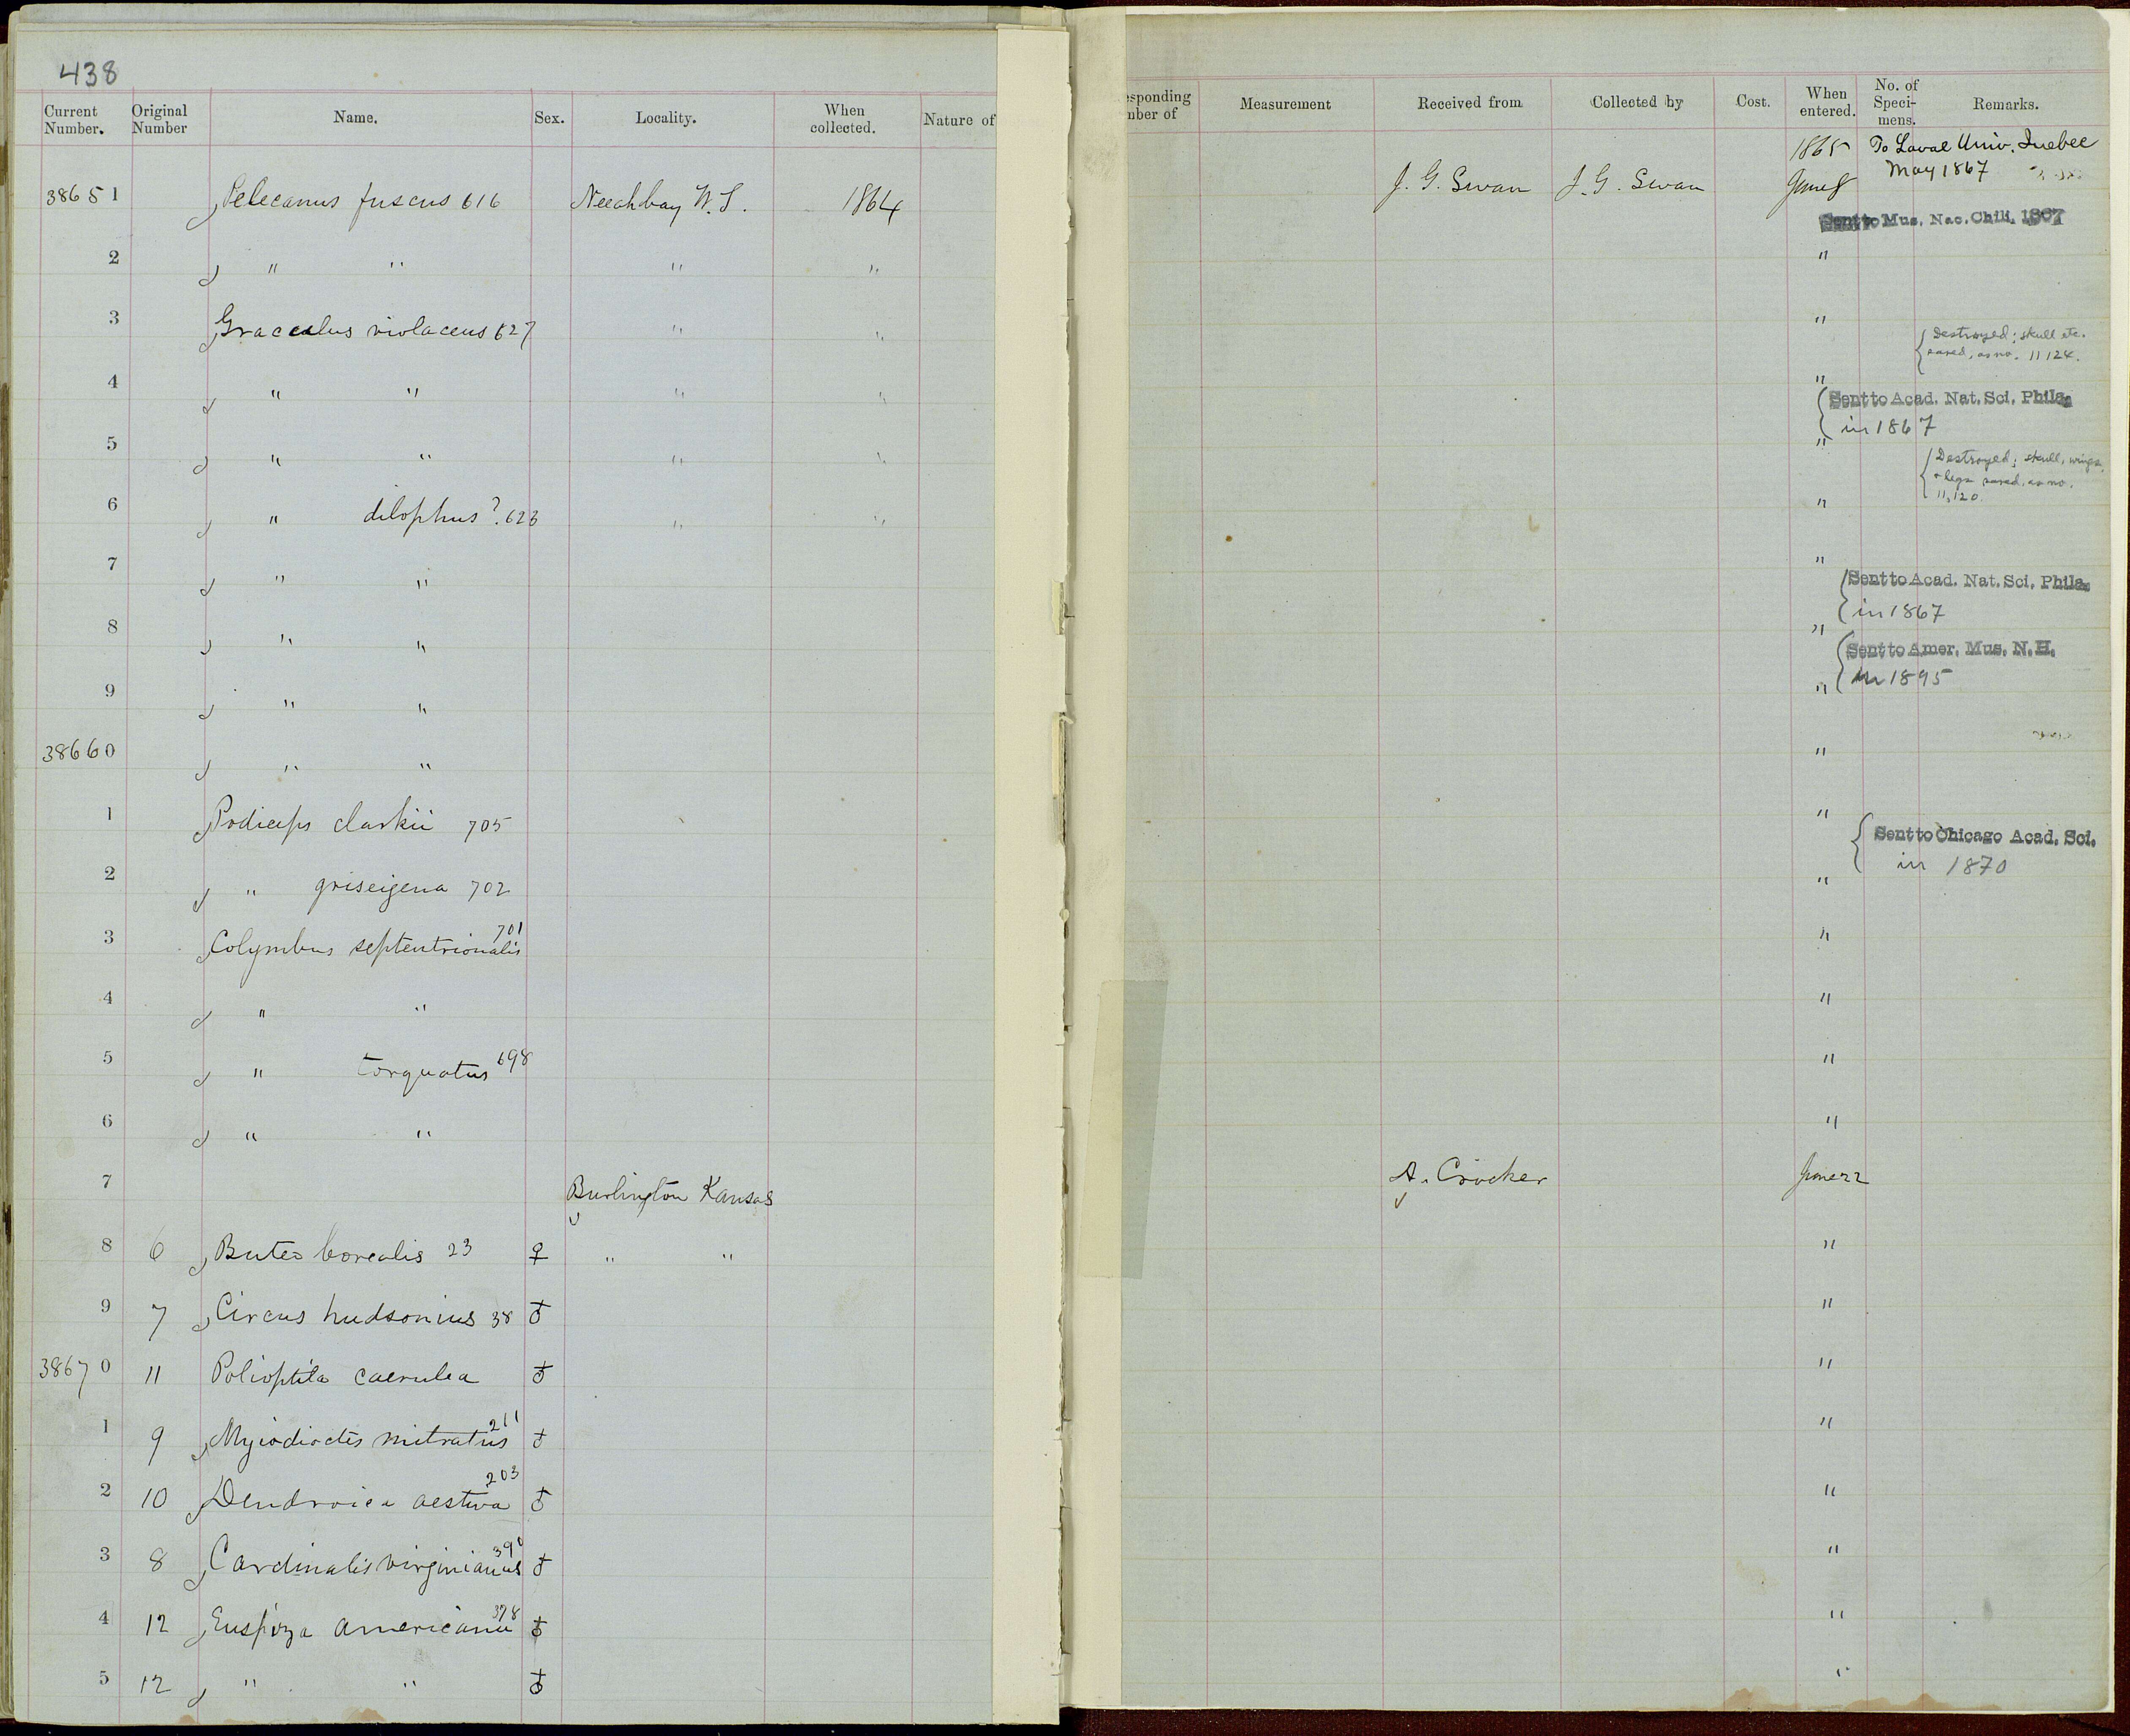 438
Current Number. Original Number Name. Sex. Locality. When collected. Nature of
esponding nber of Measurement Received from Collected by Cost. When entered. No. of Speci- mens. Remarks.
1865 To Laval Univ. Quebec
May 1867
38651 Pelecanus fuscus 616 Neeah bay W. T. 1864 J. G. Swan J. G. Swan June 8
Sent to Mus. Nac. Chili. 1867
2 " " " " "
3 Graculus violaceus 627 " " "
Destroyed; skull etc.
saved, as no. 11124.
4 " " " " "
Sent to Acad. Nat. Sci. Phila.
in 1867
5 " " " " "
Destroyed; skull, wings,
+ legs saved, as no.
11,120.
6 " dilophus? 623 " " "
7 " " "
Sent to Acad. Nat. Sci. Phila.
in 1867
8 " " "
Sent to Amer. Mus. N. H.
in 1895
9 " " "
38660 " " "
1 Podiceps clarkii 705 "
Sent to Chicago Acad. Sci.
in 1870
2 " griseigena 702 "
3 Colymbus septentrionalis 701 "
4 " " "
5 " torquatus 698 "
6 " " "
7 Burlington Kansas A. Crocker June 22
8 6 Buteo borealis 23 ♀ " " "
9 7 Circus hudsonius 38 ♂ "
38670 11 Polioptila caerulea ♂ "
1 9 Myiodioctes mitratus 211 ♂ "
2 10 Dendroica aestiva 203 ♂ "
3 8 Cardinalis virginianus 390 ♂ "
4 12 Euspiza americana 378 ♂ "
5 12 " " ♂ "